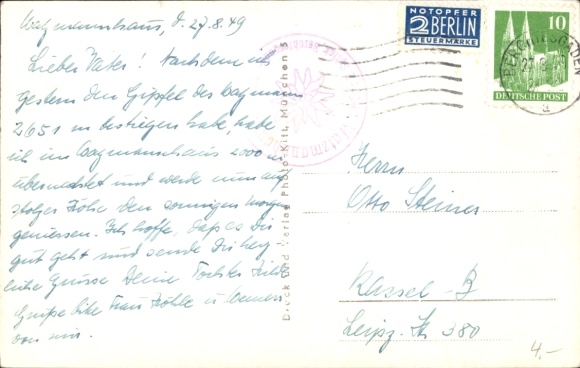 Watzmannhaus, d. 27.8.49
Lieber Vater! Nachdem ich
gestern den Gipfel des Watzmann
2651 m bestiegen habe, habe
ich im Watzmannhaus 2000 m
übernachtet und werde nun auf
stolzer Höhe den sonnigen Morgen
geniessen. Ich hoffe, dass es Dir
gut geht und sende Dir herz-
liche Grüsse Deine Tochter
Grüsse bitte Frau
von mir.
Druck und Verlag Photo-Kitt, München 5
NOTOPFER
2 BERLIN
STEUERMARKE
10
DEUTSCHE POST
BERCHTESGADEN
Herrn
Otto Steiner
Kassel-B
Leipz. Str. 380
4,-